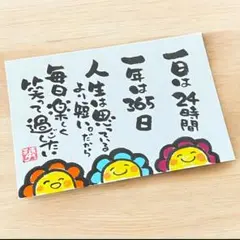 一日は24時間
一年は365日
人生は思っている
より短い。だから
毎日楽しく
笑って過ごしたい